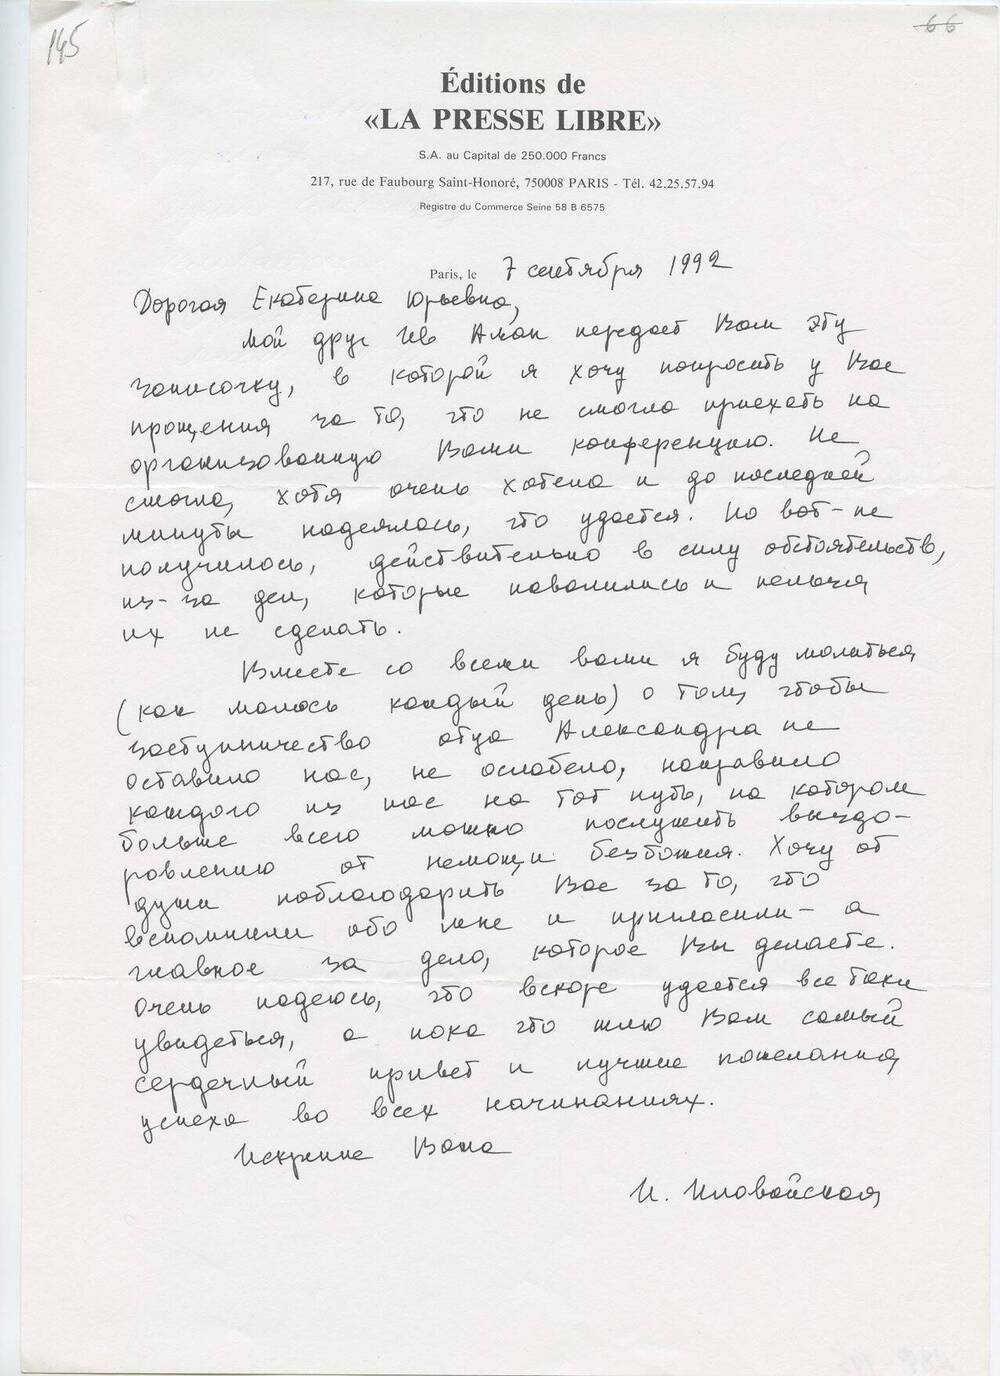 145
66
Éditions de
«LA PRESSE LIBRE»
S.A. au Capital de 250.000 Francs
217, rue de Faubourg Saint-Honoré, 750008 PARIS - Tél. 42.25.57.94
Registre du Commerce Seine 58 B 6575
Paris, le 7 сентября 1992
Дорогая Екатерина Юрьевна,
Мой друг Ив Аман передаст Вам эту
записочку, в которой я хочу попросить у Вас
прощения за то, что не смогла приехать на
организованную Вами конференцию. Не
смогла, хотя очень хотела и до последней
минуты надеялась, что удастся. Но вот - не
получилось, действительно в силу обстоятельств,
из-за дел, которые навалились и нельзя
их не сделать.
Вместе со всеми вами я буду молиться
(как молюсь каждый день) о том, чтобы
заступничество отца Александра не
оставило нас, не ослабело, направило
каждого из нас на тот путь, на котором
больше всего можно послужить выздо-
ровлению от немощи безбожия. Хочу от
души поблагодарить Вас за то, что
вспомнили обо мне и пригласили - а
главное за дело, которое Вы делаете.
Очень надеюсь, что вскоре удастся все таки
увидеться, а пока что шлю Вам самый
сердечный привет и лучшие пожелания
успеха во всех начинаниях.
Искренне Ваша
И. Иловайская